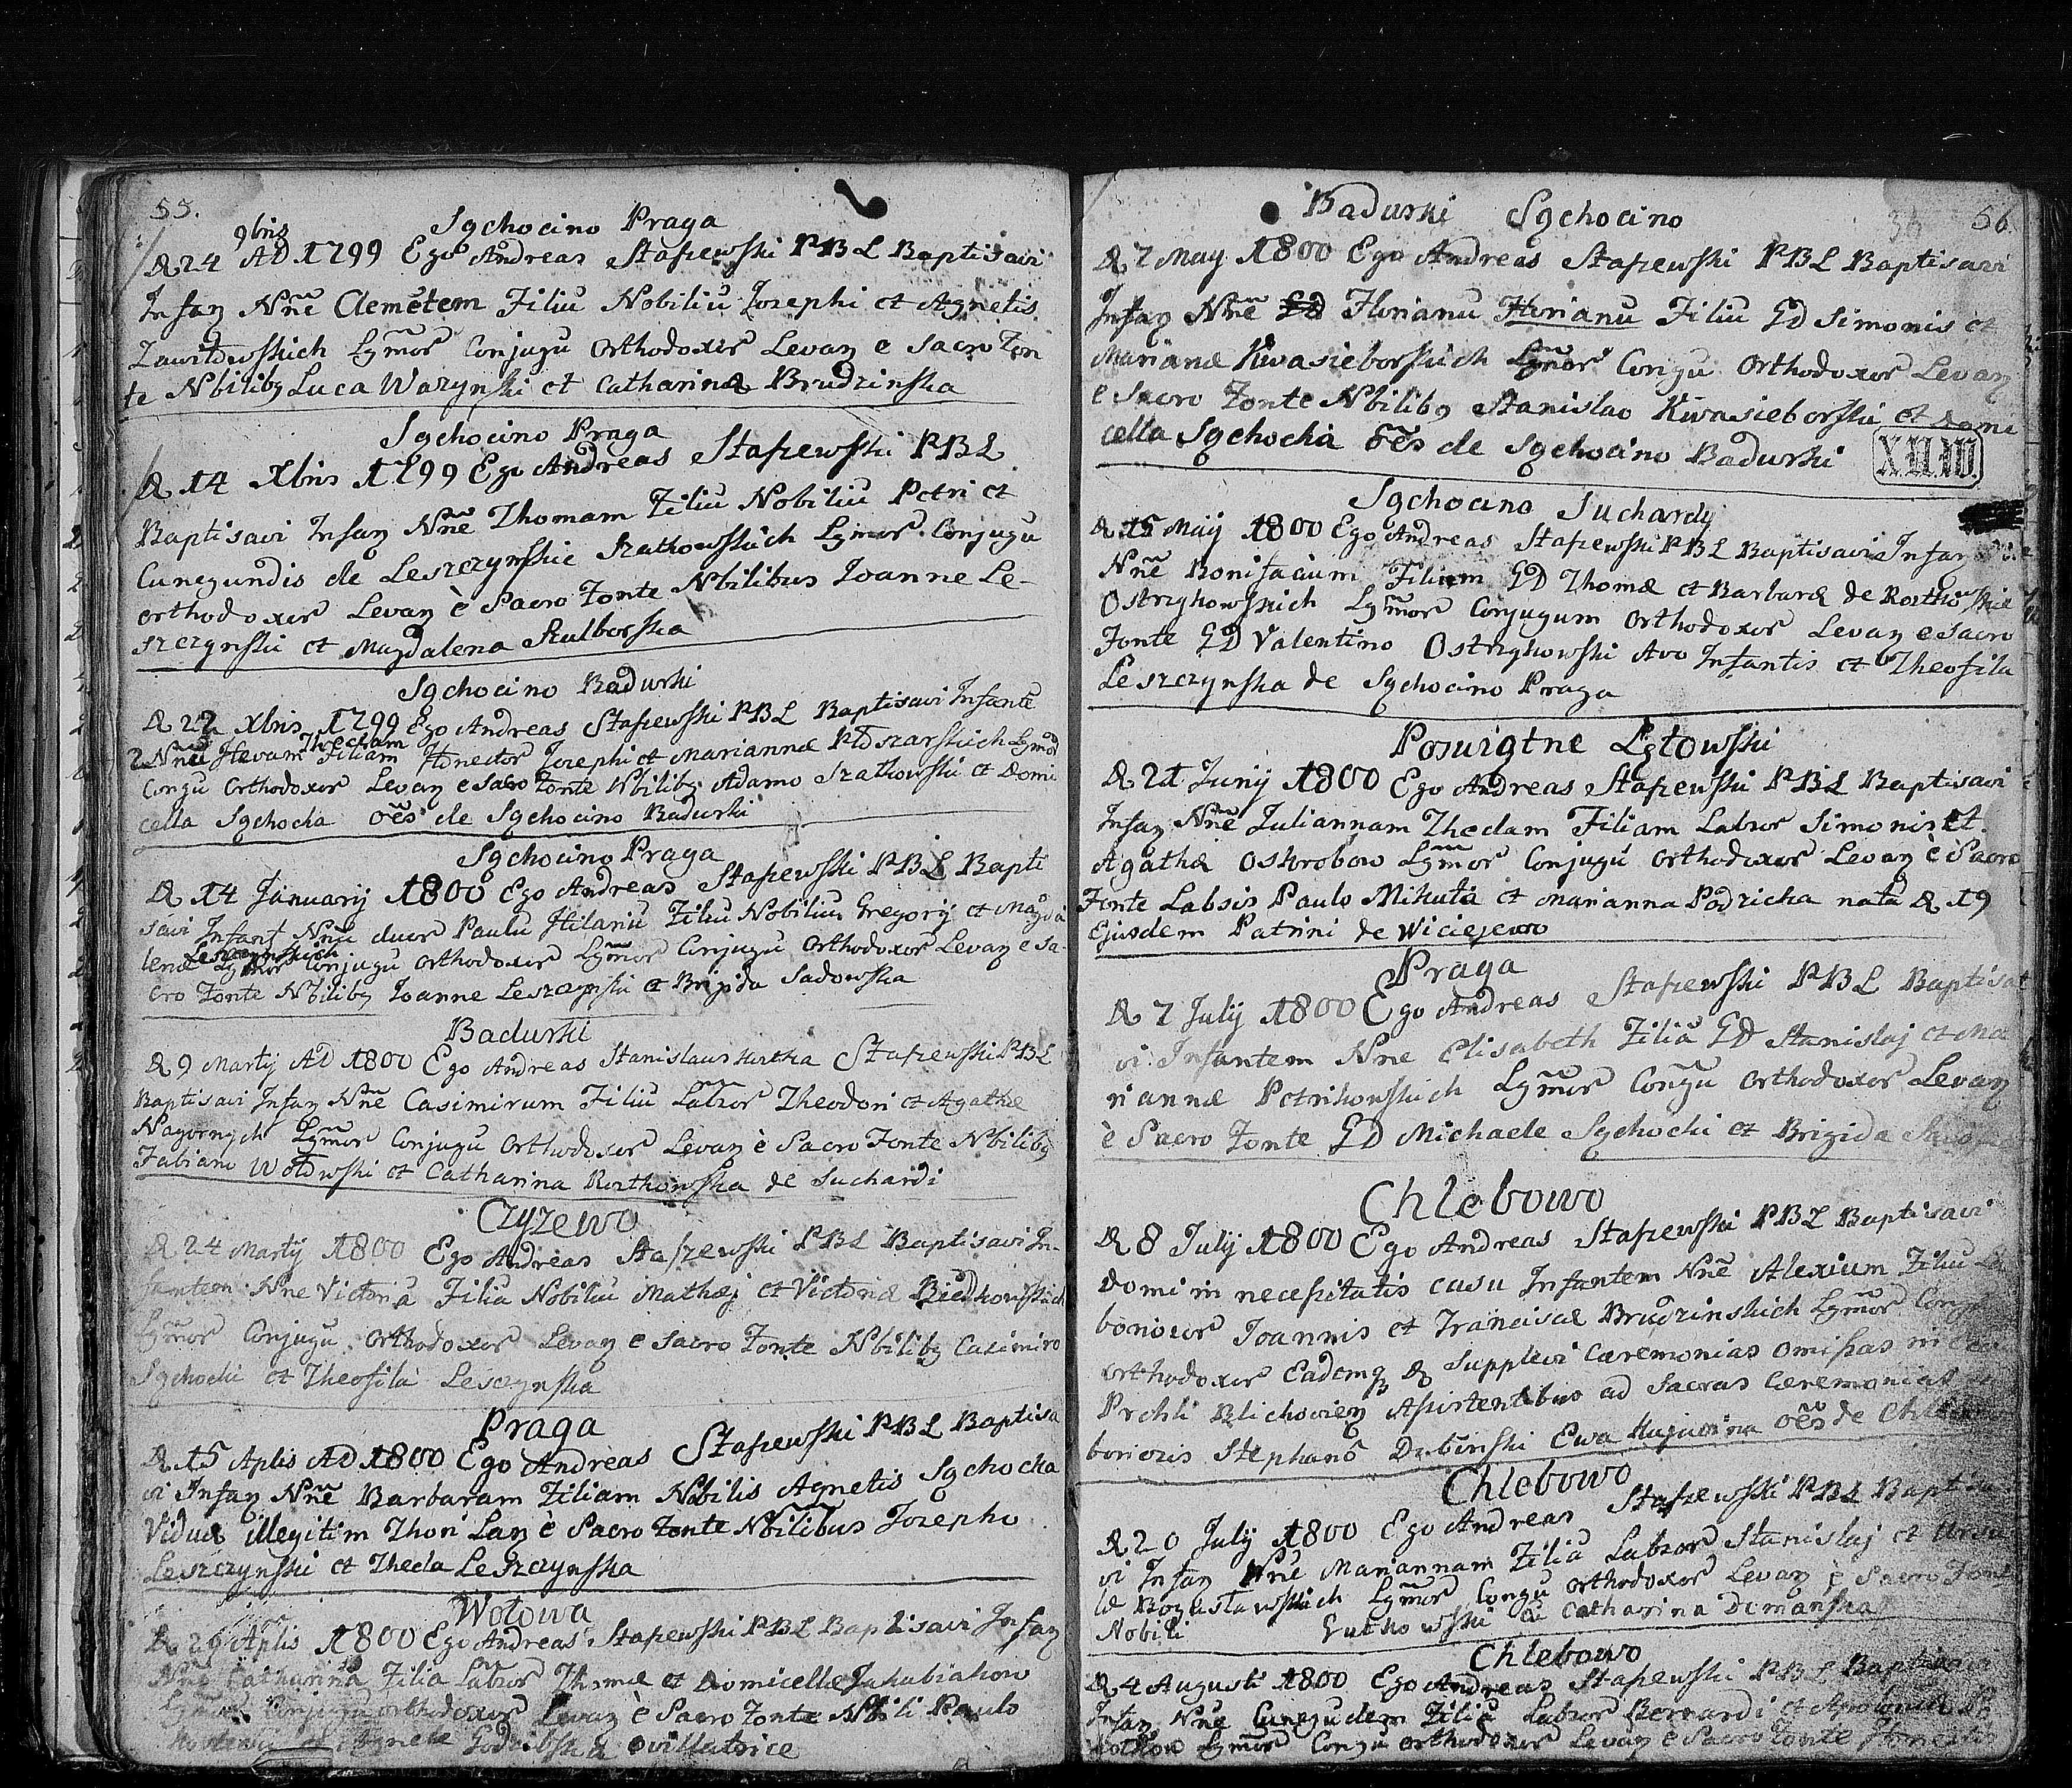 55.
Sąchocino Praga
D 24 9bris AD 1799 Ego Andreas Stapewski PBL Baptisavi
Infan Nñe Clemẽtem Filiu Nobiliu Josephi et Agnetis
Zawitowskich Lgmor Conjugu Orthodoxor Levan e Sacro Fon
te Nbilibq Luca Wazynski et Catharina Brudzinska
Sąchocino Praga
D 14 Xbris 1799 Ego Andreas Stapewski PBL
Baptisavi Infan Nñe Thomam Filiu Nobiliu Petri et
Cunegundis de Leszczynskie Szatkowskich Lgmor Conjugu
orthodoxor Levan è Sacro Fonte Nbilibus Joanne Le-
szczynski et Magdalena Szulborska
Sąchocino Badurki
D 22 Xbris 1799 Ego Andreas Stapewski PBL Baptisavi Infante
2 Nñe Hevam Theclam Filiam Honestor Josephi et Mariannæ Lgmor
Congu Orthodoxor Levan e Sacro Fonte Nbilibq Adamo Szatkowski et Domi
cella Sąchocka oẽs de Sąchocino Badurki
Sąchocino Praga
D 14 Januarij 1800 Ego Andreas Stapewski PBL Bapti
savi Infant Nñe duor Paulu Hilariu Filiu Nobiliu Gregorij et Magda
lenæ Leszczynskich Lgmor Conjugu Orthodoxor Lgmor Conjugu Orthodoxor Levan e Sa
cro Fonte Nbilibq Joanne Leszczynski et Brigida Sadowska
Badurki
D 9 Martij AD 1800 Ego Andreas Stanislaus Stapewski PBL
Baptisavi Infan Nñe Casimirum Filiu Labror Theodori et Agathæ
Nagornych Lgmor Conjugu Orthodoxor Levan è Sacro Fonte Nbilibq
Fabiano Wołowski et Catharina Rostkowska de Suchardi
Czyzewo
D 24 Martij 1800 Ego Andreas Stapzewski PBL Baptisavi In-
fantem Nñe Victoriã Filia Nobiliu Mathæj et Victoriæ
Lgmor Conjugu Orthodoxor Levan e Sacro Fonte Nbilibq Casimiro
Sąchocki et Theofila Leszczynska
Praga
D 15 Aplis AD 1800 Ego Andreas Stapewski PBL Baptisa
vi Infan Nñe Barbaram Filiam Nobilis Agnetis Sąchocka
Viduæ illegitim Thori Lan è Sacro Fonte Nbilibus Josepho
Leszczynski et Thecla Leszczynska
Wołowa
D Aplis 1800 Ego Andreas Stapewski PBL Baptisavi Infan
Nñe Catharinã Filia Labror Thomæ et Domicellæ Jakubiakow
Lgmor Conjugu orthodoxor Levan è Sacro Fonte Nbili Paulo
et Agnete ovillatrice
Badurki Sąchocino
56.
D 7 May 1800 Ego Andreas Stapewski PBL Baptisavi
Infan Nñe Florianu Florianu Filiu GD Simonis et
Mariañæ Kwasieborskich Lgmor Congu Orthodoxor Levan
e Sacro Fonte Nbilibq Stanislao Kwasieborski et Domi
cella Sąchocka oẽs de Sąchocino Badurki
Sąchocino Suchardy
D 15 May 1800 Ego Andreas Stapewski PBL Baptisavi Infan
Nñe Bonifacium Filium GD Thomæ et Barbaræ de Rostkowskie
Ostrzykowskich Lgmor Conjugum Orthodoxor Levan e Sacro
Fonte GD Valentino Ostrzykowski Avo Infantis et Theofila
Leszczynska de Sąchocino Praga
Poswiątne Lętowski
D 21 Junij 1800 Ego Andreas Stapewski PBL Baptisavi
Infan Nñe Juliannam Theclam Filiam Labror Simonis et
Agathæ Oskrobow Lgmor Conjugu Orthodoxor Levan è Sacro
Fonte Labsis Paulo Mikuta et Marianna Podzicka nata D 19
Ejusdem Patrini de Wiciejewo
Praga
D 7 July 1800 Ego Andreas Stapewski PBL Baptisa
vi Infantem Nñe Elisabeth Filiã GD Stanislaj et Ma
riannæ Petrikowskich Lgmor Congu Orthodoxor Levan
è Sacro Fonte GD Michaele Sąchocki et Brigida
Chlebowo
D 8 July 1800 Ego Andreas Stapewski PBL Baptisavi
domi in necessitatis casu Infantem Nñe Alexium Filiu La
boriosor Joannis et Franciscæ Brudzinskich Lgmor Congu
orthodoxor Eademq D Supplevi cæremonias omissas in
Prchli Assistentibus ad Sacras Ceremonias
boriosis Stephanõ Dubinski Ewa oẽs de Chlebowo
Chlebowo
D 20 July 1800 Ego Andreas Stapewski PBL Baptisa
vi Infan Nñe Mariannam Filiã Labror Stanislaj et Ursu
læ Bogusławskich Lgmor Congu orthodoxor Levan è Sacro Fonte
Nobili Gutkowski et Catharina Domanska
Chlebowo
D 4 Augusti 1800 Ego Andreas Stapewski PBL Baptisavi
Infan Nñe Cunegudem Filiã Labror Bernardi et Apoloniæ
Lgmor Congu orthodoxor Levan è Sacro Fonte Honestis